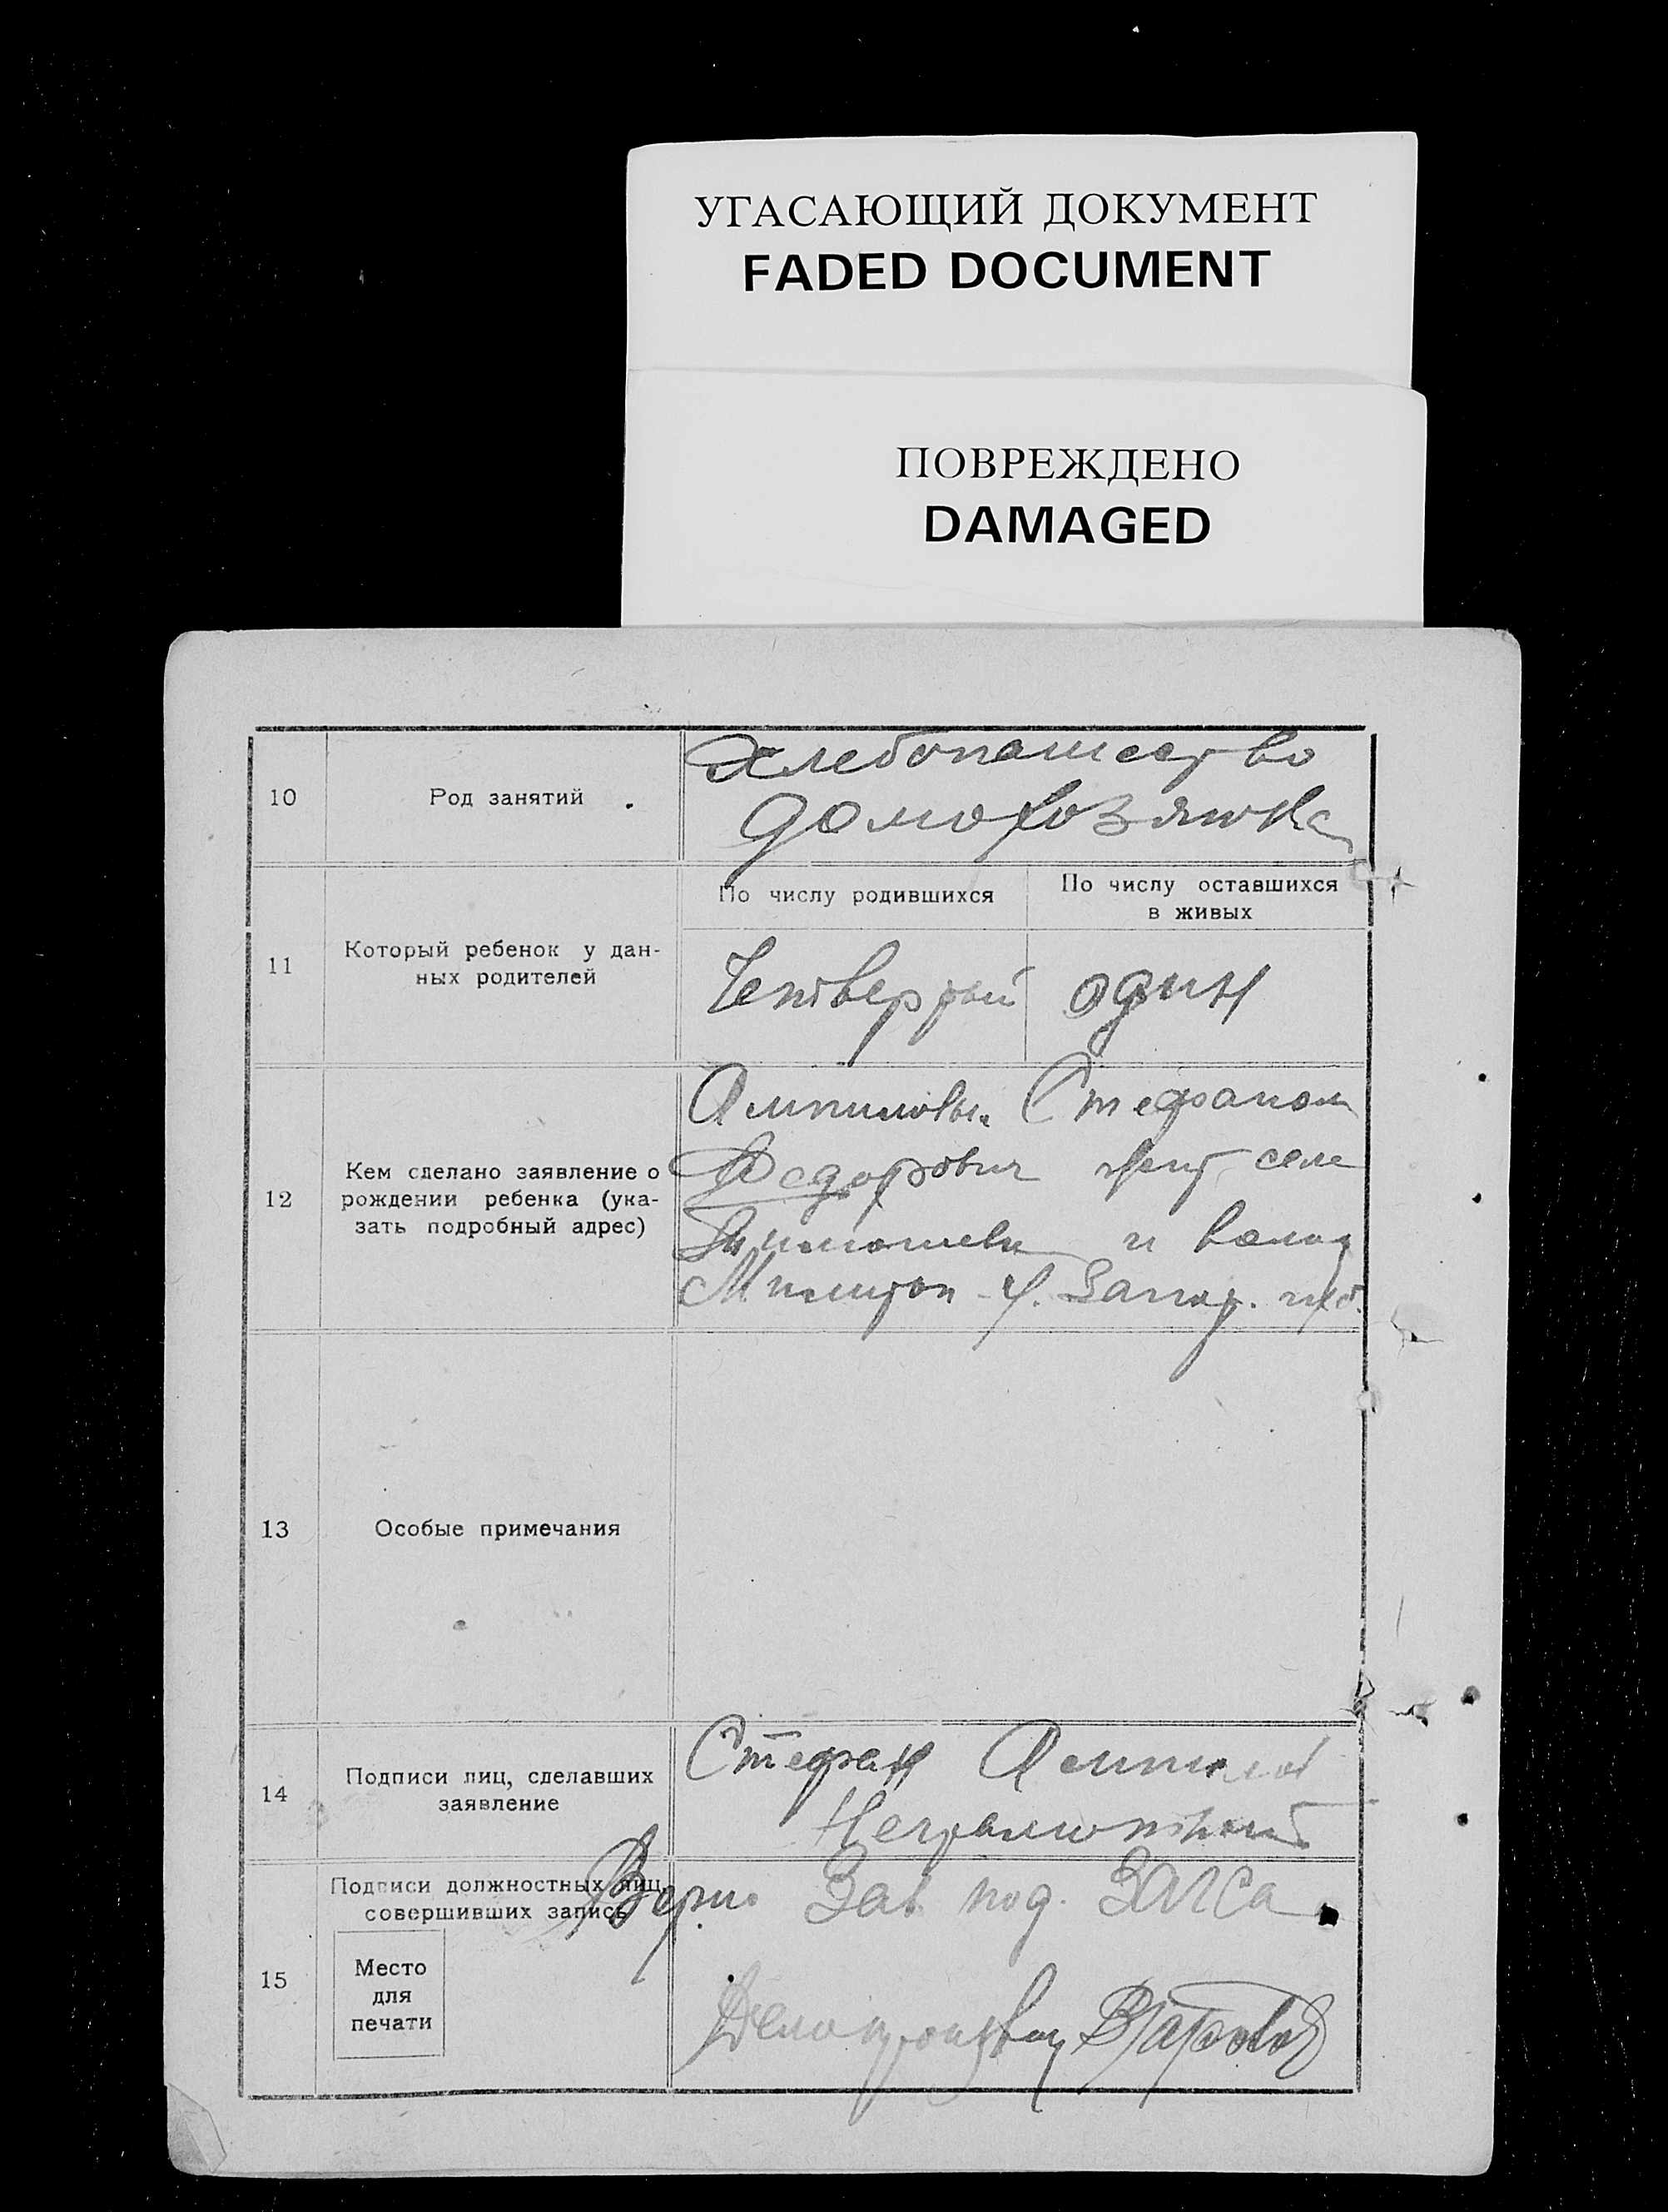 УГАСАЮЩИЙ ДОКУМЕНТ
FADED DOCUMENT
ПОВРЕЖДЕНО
DAMAGED
10
Род занятий
Хлебопашество
домохозяйка
11
Который ребенок у дан-
ных родителей
По числу родившихся
Четвертый
По числу оставшихся
в живых
один
12
Кем сделано заявление о
рождении ребенка (ука-
зать подробный адрес)
Стефаном
Федорович жит села
и волос
Запор. губ.
13
Особые примечания
14
Подписи лиц, сделавших
заявление
Стефан
Неграмотный
15
Подписи должностных лиц,
совершивших запись
Место
для
печати
Верно Зав. под. Загса
Делопроизвод